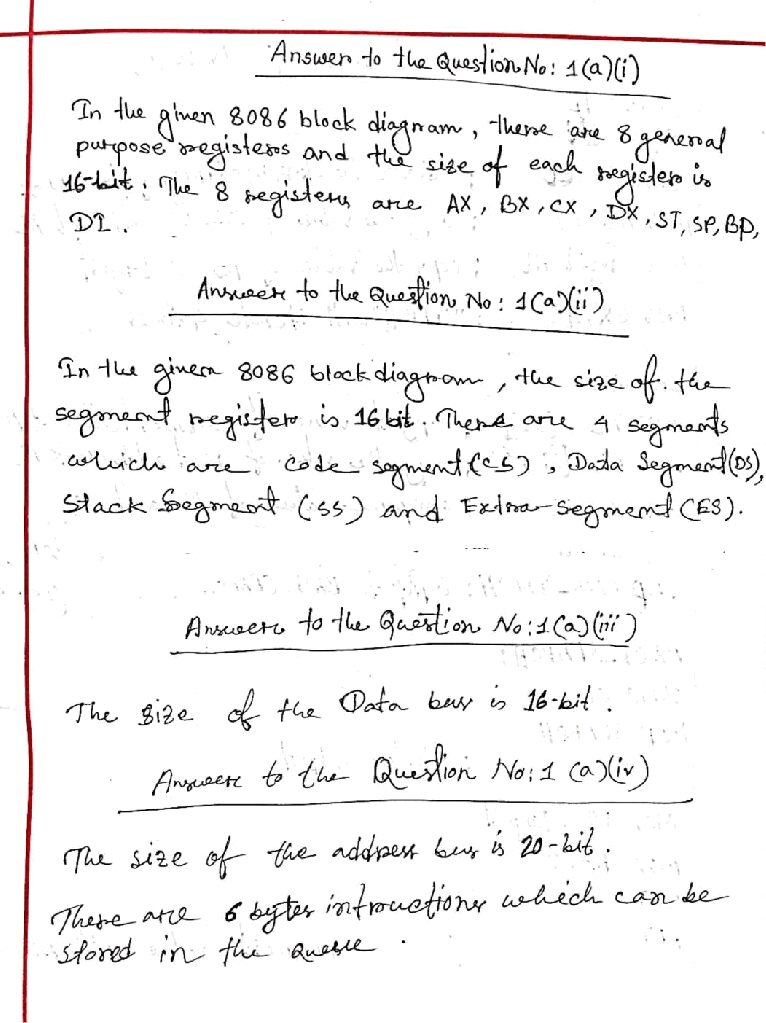 Answer to the Question No: 1(a)(i)
In the given 8086 block diagram, there are 8 general
purpose registers and the size of each register is
16-bit. The 8 registers are AX, BX, CX, DX, ST, SP, BP,
DI.
Answer to the Question No: 1(a)(ii)
In the given 8086 block diagram, the size of the
segment register is 16 bit. There are 4 segments
which are code segment (CS), Data Segment (DS),
Stack Segment (SS) and Extra-Segment (ES).
Answer to the Question No: 1(a)(iii)
The size of the Data bus is 16-bit.
Answer to the Question No: 1(a)(iv)
The size of the address bus is 20-bit.
There are 6 bytes intructions which can be
stored in the queue.